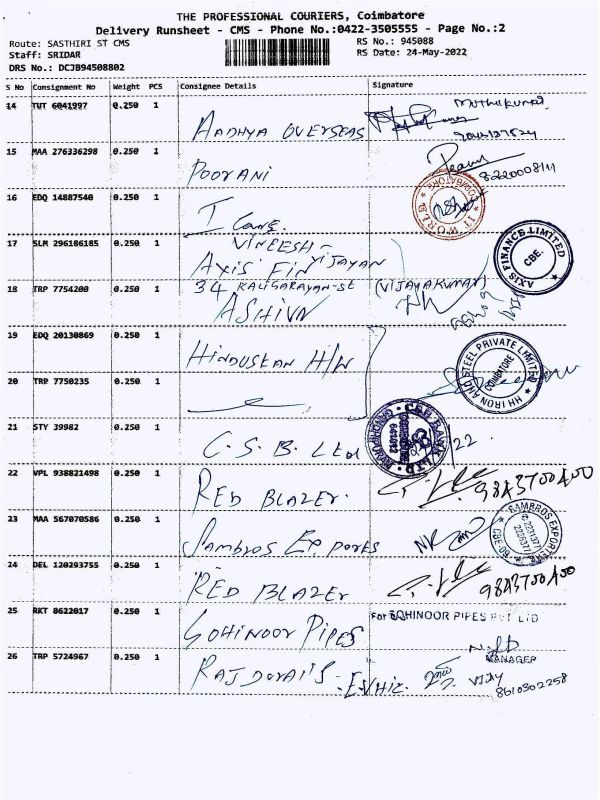 THE PROFESSIONAL COURIERS, Coimbatore
Delivery Runsheet - CMS - Phone No.:0422-3505555 - Page No.:2
Route: SASTHIRI ST CMS
RS No.: 945088
Staff: SRIDAR
RS Date: 24-May-2022
DRS No.: DCJB94508802
S No Consignment No Weight PCS Consignee Details Signature
14 TUT 6041997 0.250 1 AADHYA OVERSEAS
15 MAA 276336298 0.250 1 POORANI 8220008111
16 EDQ 14887540 0.250 1 I Cans.
IT WORLD
17 SLM 296186185 0.250 1 VINEESH-
AXIS FIN VIJAYAN
AXIS FINANCE LIMITED
CBE.
18 TRP 7754200 0.250 1 34 KALIGARAYAN-ST (VIJAYAKUMAR)
ASHIVN
19 EDQ 20130869 0.250 1 HINDUSTAN H/W
HH IRON AND STEEL PRIVATE LIMITED
COIMBATORE
20 TRP 7750235 0.250 1
21 STY 39982 0.250 1 C.S.B. Ltd
CSB BANK LTD.
22 VPL 938821498 0.250 1 RED BLAZER. 9843700400
23 MAA 567070586 0.250 1 SAMBROS EXPORTS
SAMBROS EXPORTERS
24 DEL 120293755 0.250 1 RED BLAZER 9843700400
25 RKT 8622017 0.250 1 SOHINOOR PIPES
For SOHINOOR PIPES PVT LTD
MANAGER
26 TRP 5724967 0.250 1 RAJ DORAI'S VIJAY
8610302258